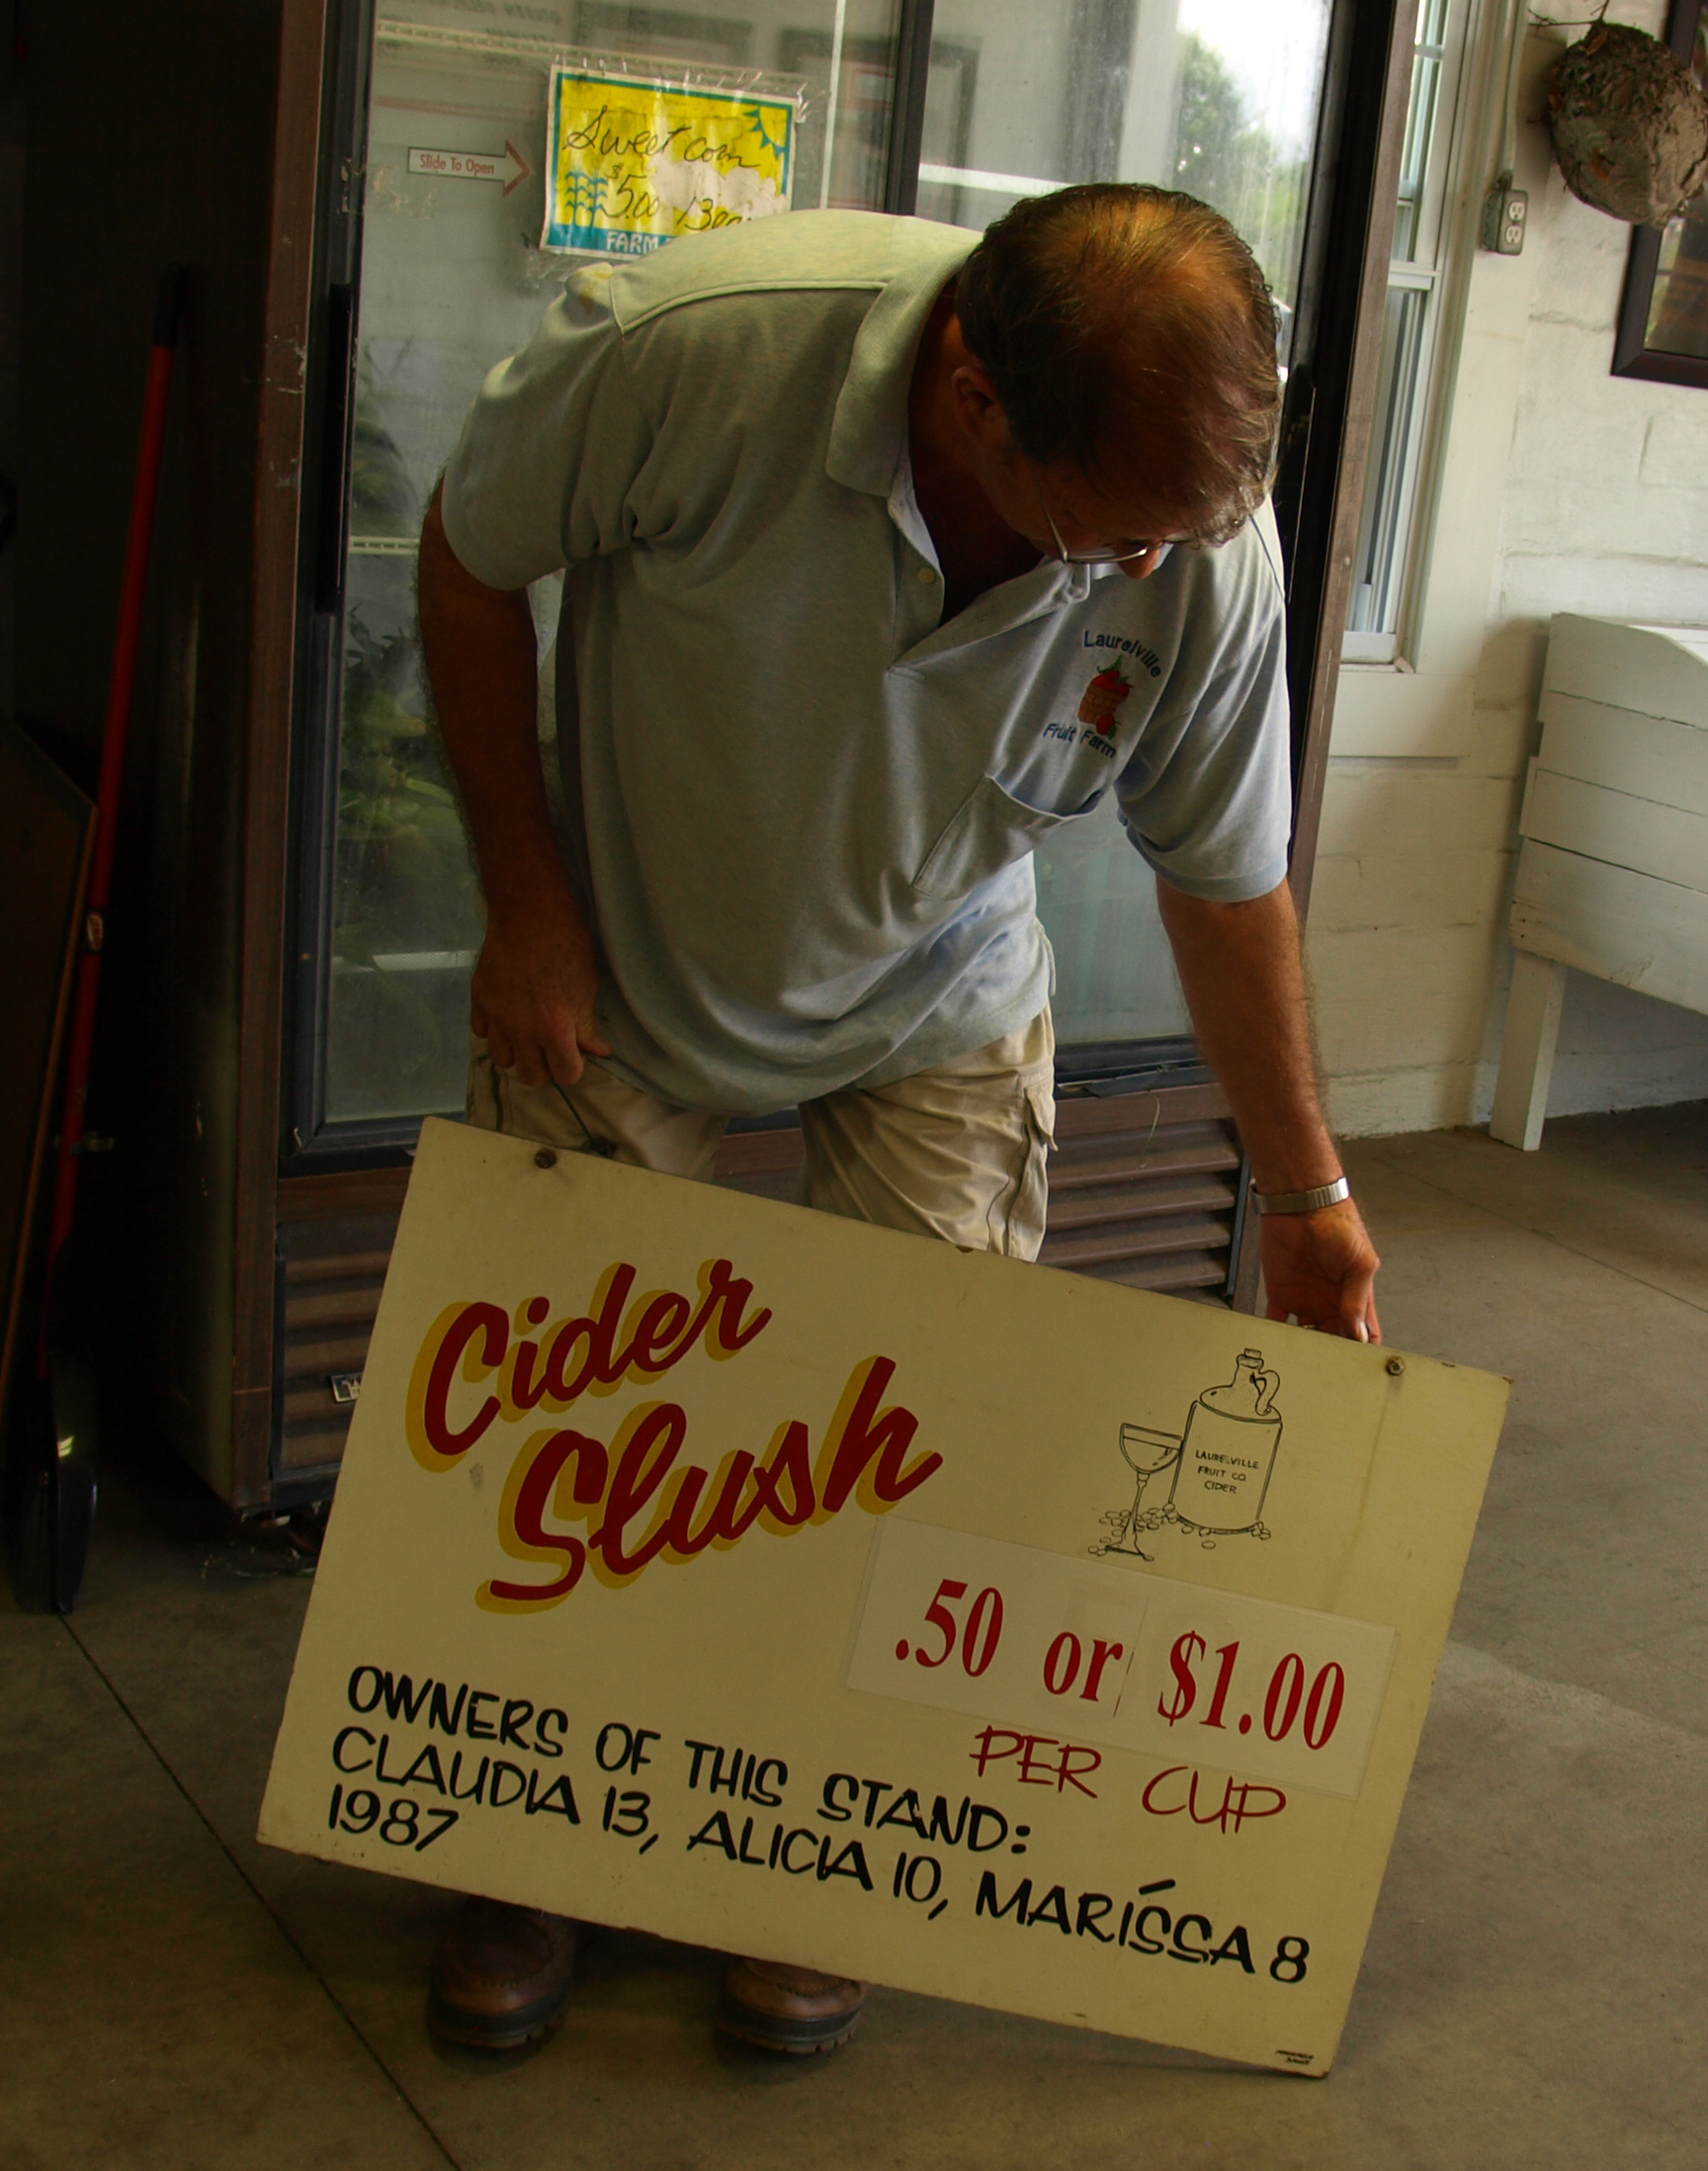 Slide To Open
Sweet corn
$5.00 /13
FARM
Laurelville
Fruit Farm
Cider
Slush
LAURELVILLE
FRUIT CO
CIDER
.50 or $1.00
PER CUP
OWNERS OF THIS STAND:
CLAUDIA 13, ALICIA 10, MARÍSSA 8
1987